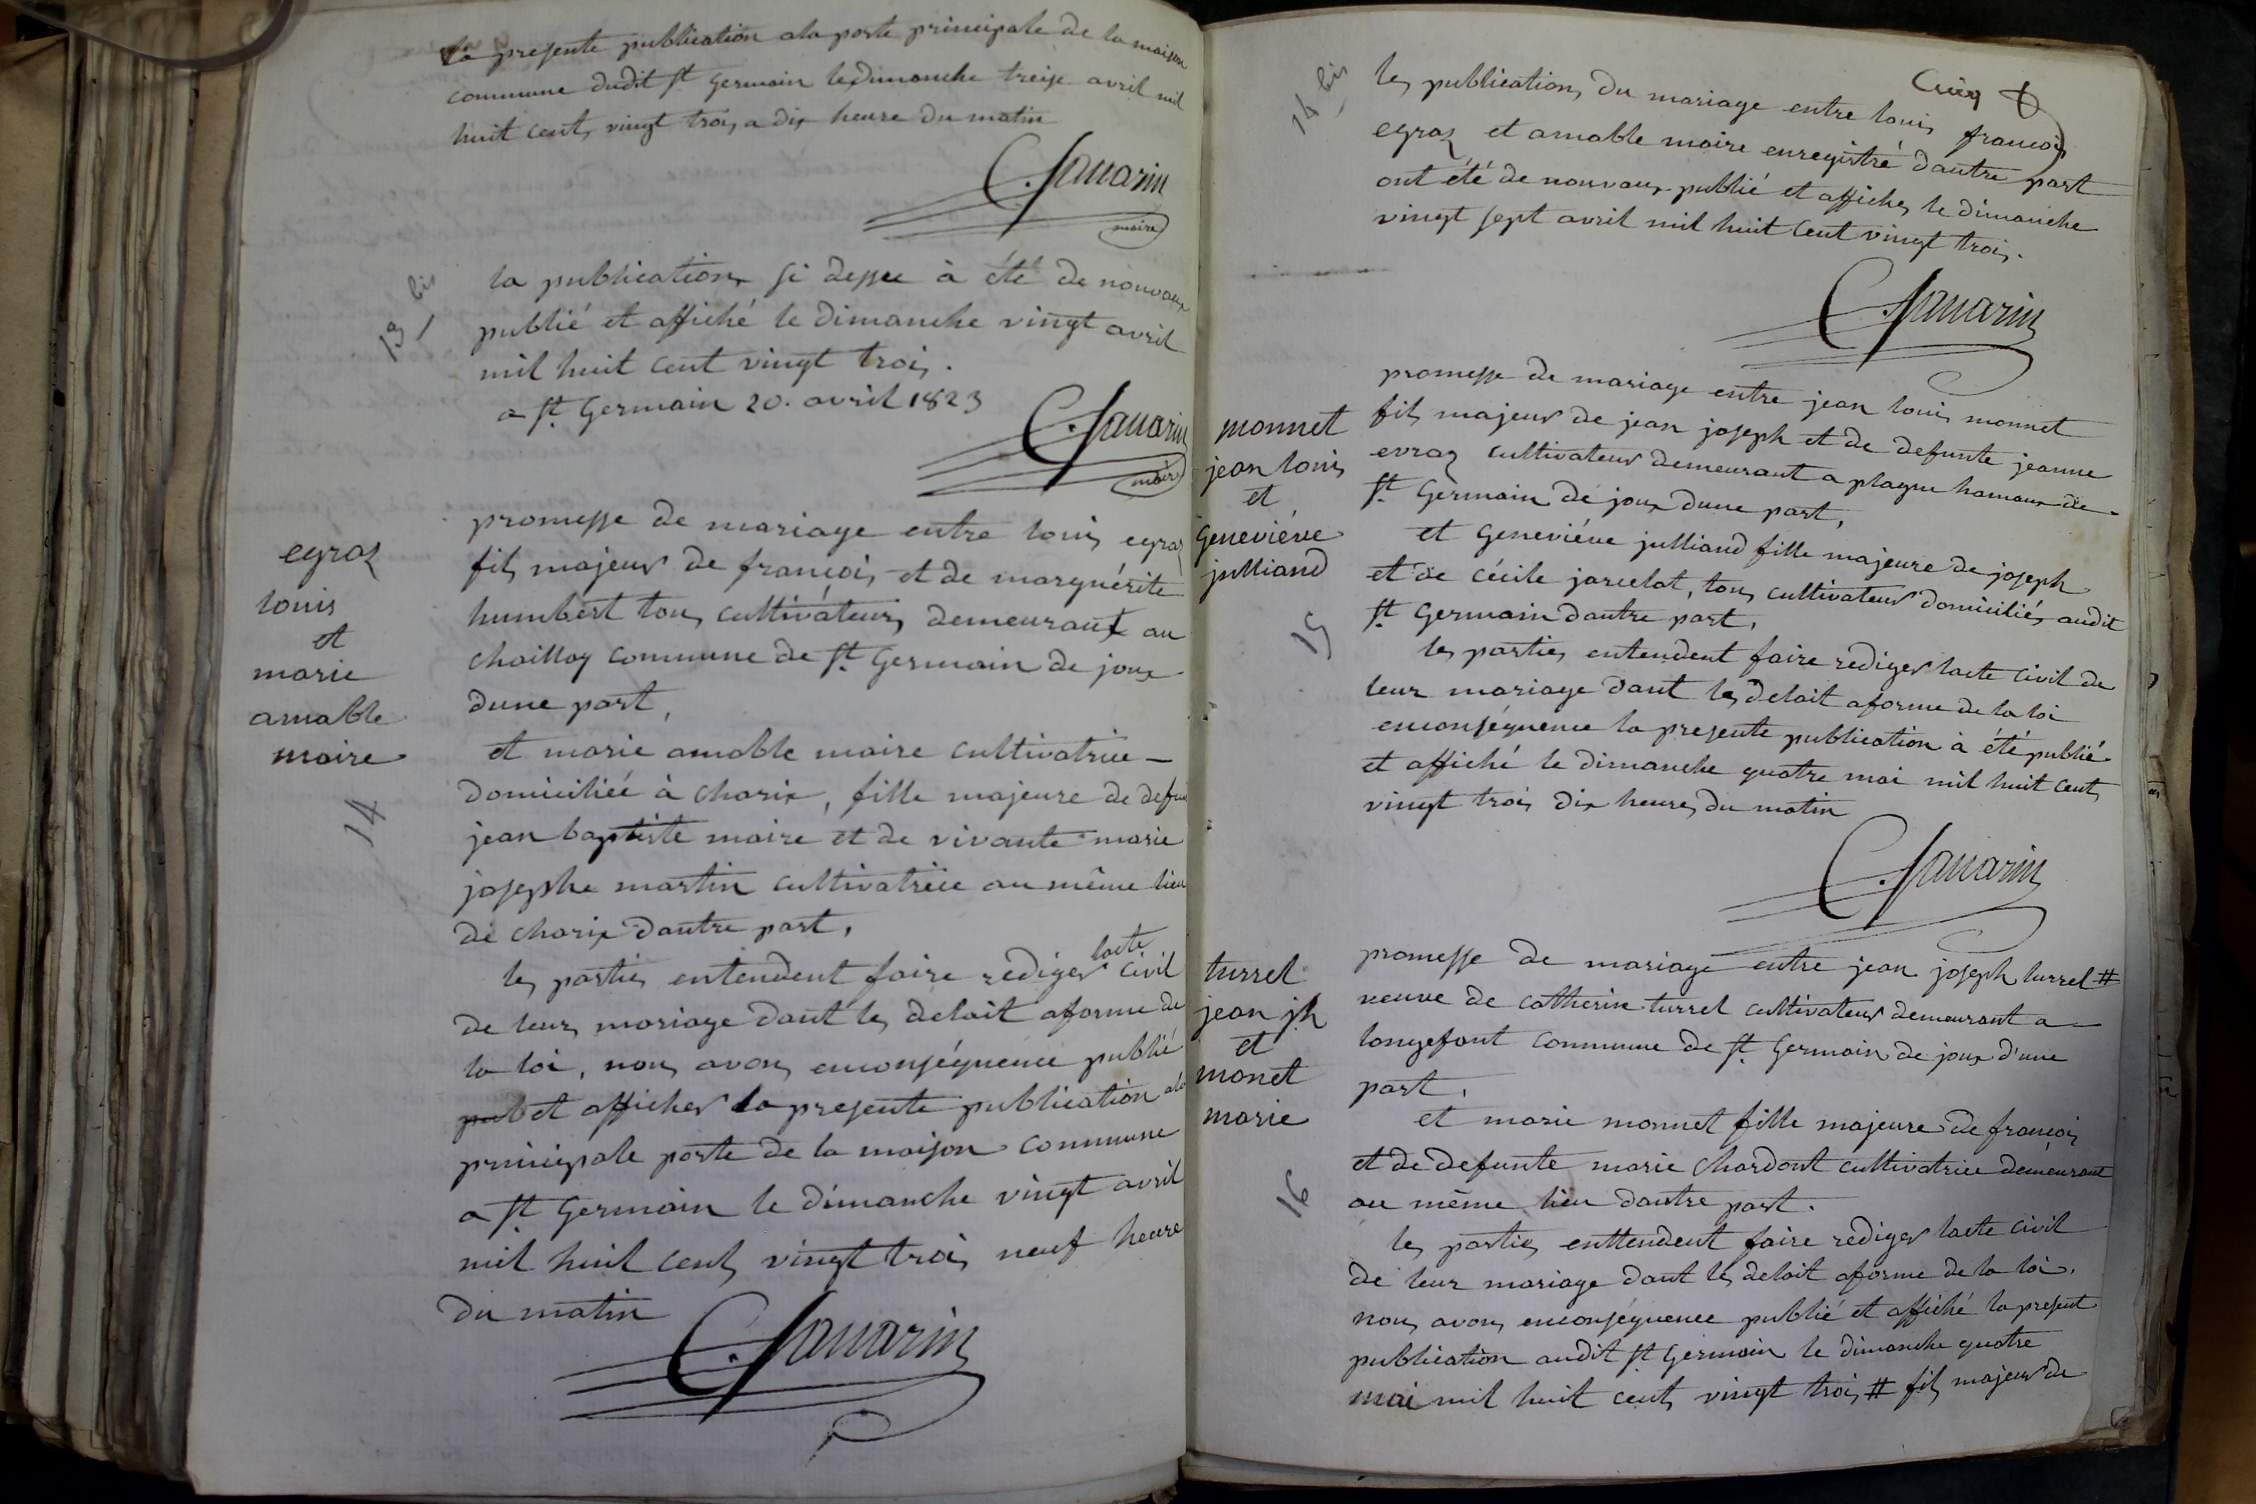 la presente publication ala porte principale de la maison
commune dudit st Germain le dimanche treise avril mil
huit cents vingt trois a dix heure du matin
C. Savarin
maire
13 bis
la publications si dessu à été de nouvaux
publié et affiché le dimanche vingt avril
mil huit cent vingt trois.
a st. Germain 20. avril 1823
C. Savarin
maire
egraz
louis
et
marie
amable
maire
14
promesse de mariage entre louis egraz
fils majeur de françois et de marguérite
humbert tous cultivateurs demeurant au
Chaillay commune de st. Germain de joux
dune part,
et marie amable maire cultivatrice
domiciliéé à charix, fille majeure de defun
jean baptiste maire et de vivante marie
josephe martin cultivatrice au même lieu
de charix dautre part,
les parties entendent faire rediger lacte civil
de leurs mariage dant les delait aforme de
la loi, nous avons enconséquence publié
pub et afficher la presente publication ala
principale porte de la maison commune
a st. Germain le dimanche vingt avril
mil huit cents vingt trois neuf heure
du matin
C. Savarin
14 bis
les publications du mariage entre louis françois
egraz et amable maire enregistré dautre part
ont été de nouvaux publié et affiches le dimanche
vingt sept avril mil huit cent vingt trois.
C. Savarin
monnet
jean louis
et
Geneviéve
julliand
15
promesse de mariage entre jean louis monnet
fils majeur de jean joseph et de defunte jeanne
evraz cultivateur demeurant a plagne hamaux de
st. Germain de joux dune part,
et Geneviéve julliand fille majeure de joseph
et de cécile jarcelat, tous cultivateur domiciliés audit
st. Germain dautre part,
les parties entendent faire rediger lacte civil de
leur mariage dant les delait aforme de la loi
enconséquence la presente publication à été publié
et affiché le dimanche quatre mai mil huit cents
vingt trois dix heures du matin
C. Savarin
turrel
jean jh
et
monet
marie
16
promesse de mariage entre jean joseph turrel #
veuve de catherin turrel cultivateur demeurant a
longefont commune de st. Germain de joux d'une
part,
et marie monnet fille majeure de françois
et de defunte marie Chardont cultivatrice demeurant
au même lieu dautre part.
les parties enttendent faire rediger lacte civil
de leur mariage dant les delait aforme de la loi,
nous avons enconséquence publié et affiché la present
publication audit st. Germain le dimanche quatre
mai mil huit cents vingt trois # fils majeur de